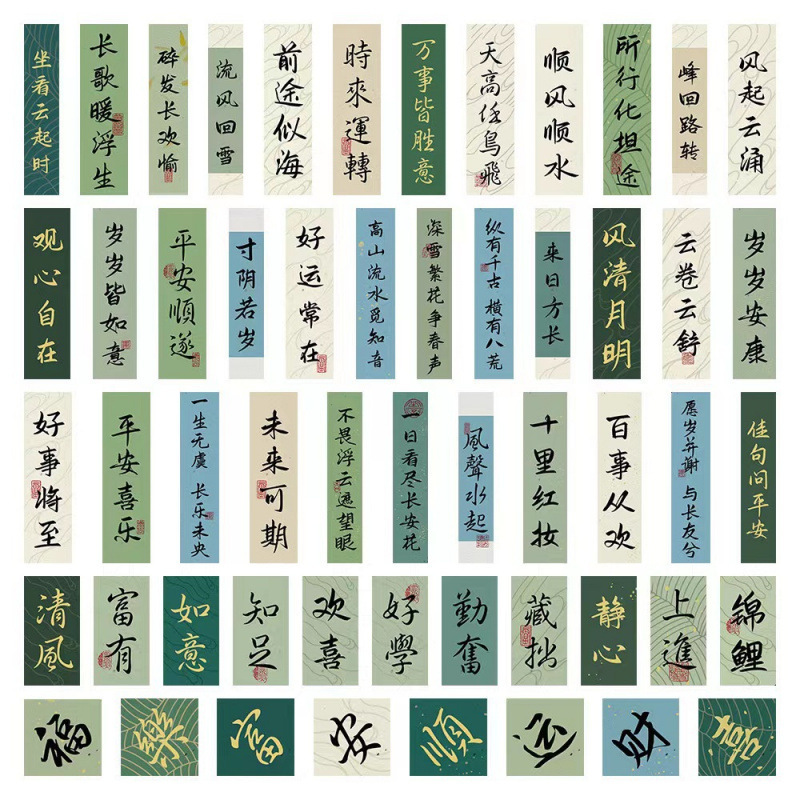 坐看云起时
长歌暖浮生
碎发长欢愉
流风回雪
前途似海
時來運轉
万事皆胜意
天高任鸟飛
顺风顺水
所行化坦途
峰回路转
风起云涌
观心自在
岁岁皆如意
平安順遂
寸阴若岁
好运常在
高山流水觅知音
深雪繁花争春声
纵有千古 横有八荒
来日方长
风清月明
云卷云舒
岁岁安康
好事将至
平安喜乐
一生无虞 长乐未央
未来可期
不畏浮云遮望眼
一日看尽长安花
風聲水起
十里红妆
百事从欢
愿岁并谢 与长友兮
佳句问平安
清風
富有
如意
知足
欢喜
好學
勤奮
藏拙
静心
上進
锦鲤
福
樂
富
安
順
还
财
喜